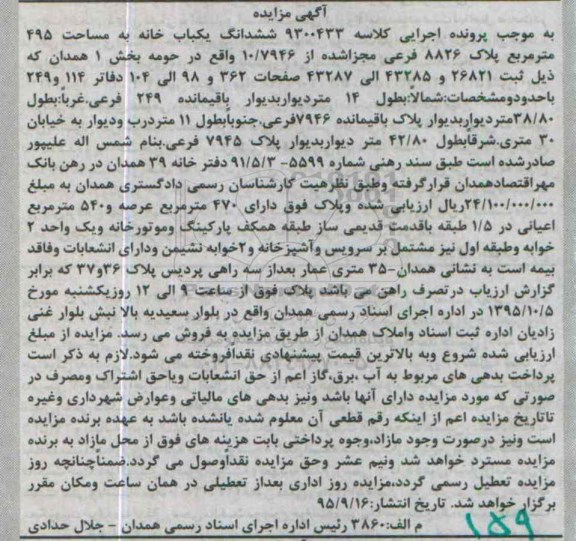 آگهی مزایده
به موجب پرونده اجرایی کلاسه ۹۳۰۰۴۳۳ ششدانگ یکباب خانه به مساحت ۴۹۵
مترمربع پلاک ۸۸۲۶ فرعی مجزاشده از ۱۰/۷۹۴۶ واقع در حومه بخش ۱ همدان که
ذیل ثبت ۲۶۸۲۱ و ۴۳۲۸۵ الی ۴۳۲۸۷ صفحات ۳۶۲ و ۹۸ الی ۱۰۴ دفاتر ۱۱۴ و۲۴۹
باحدودومشخصات:شمالاً:بطول ۱۴ متردیواربدیوار باقیمانده ۲۴۹ فرعی.غرباً:بطول
۳۸/۸۰متردیواربدیوار پلاک باقیمانده ۷۹۴۶فرعی.جنوبابطول ۱۱ متردرب ودیوار به خیابان
۳۰ متری.شرقاًبطول ۴۲/۸۰ متر دیواربدیوار پلاک ۷۹۴۵ فرعی.بنام شمس اله علیپور
صادرشده است طبق سند رهنی شماره ۵۵۹۹- ۹۱/۵/۳ دفتر خانه ۳۹ همدان در رهن بانک
مهراقتصادهمدان قرارگرفته وطبق نظرهیت کارشناسان رسمی دادگستری همدان به مبلغ
۲۴/۱۰۰/۰۰۰/۰۰۰ریال ارزیابی شده وپلاک فوق دارای ۴۷۰ مترمربع عرصه و۵۴۰ مترمربع
اعیانی در ۱/۵ طبقه باقدمت قدیمی ساز طبقه همکف پارکینگ وموتورخانه ویک واحد ۲
خوابه وطبقه اول نیز مشتمل بر سرویس وآشپزخانه و۲خوابه نشیمن ودارای انشعابات وفاقد
بیمه است به نشانی همدان-۳۵ متری عمار بعداز سه راهی پردیس پلاک ۳۶و۳۷ که برابر
گزارش ارزیاب درتصرف راهن می باشد پلاک فوق از ساعت ۹ الی ۱۲ روزیکشنبه مورخ
۱۳۹۵/۱۰/۵ در اداره اجرای اسناد رسمی همدان واقع در بلوار سعیدیه بالا نبش بلوار غنی
زادیان اداره ثبت اسناد واملاک همدان از طریق مزایده به فروش می رسد. مزایده از مبلغ
ارزیابی شده شروع وبه بالاترین قیمت پیشنهادی نقدافروخته می شود.لازم به ذکر است
پرداخت بدهی های مربوط به آب ،برق،گاز اعم از حق انشعابات ویاحق اشتراک ومصرف در
صورتی که مورد مزایده دارای آنها باشد ونیز بدهی های مالیاتی وعوارض شهرداری وغیره
تاتاریخ مزایده اعم از اینکه رقم قطعی آن معلوم شده یانشده باشد به عهده برنده مزایده
است ونیز درصورت وجود مازاد،وجوه پرداختی بابت هزینه های فوق از محل مازاد به برنده
مزایده مسترد خواهد شد ونیم عشر وحق مزایده نقداًوصول می گردد.ضمناًچنانچه روز
مزایده تعطیل رسمی گردد،مزایده روز اداری بعداز تعطیلی در همان ساعت ومکان مقرر
برگزار خواهد شد. تاریخ انتشار:۹۵/۹/۱۶
م الف:۳۸۶۰ رئیس اداره اجرای اسناد رسمی همدان - جلال حدادی
۱۵۹